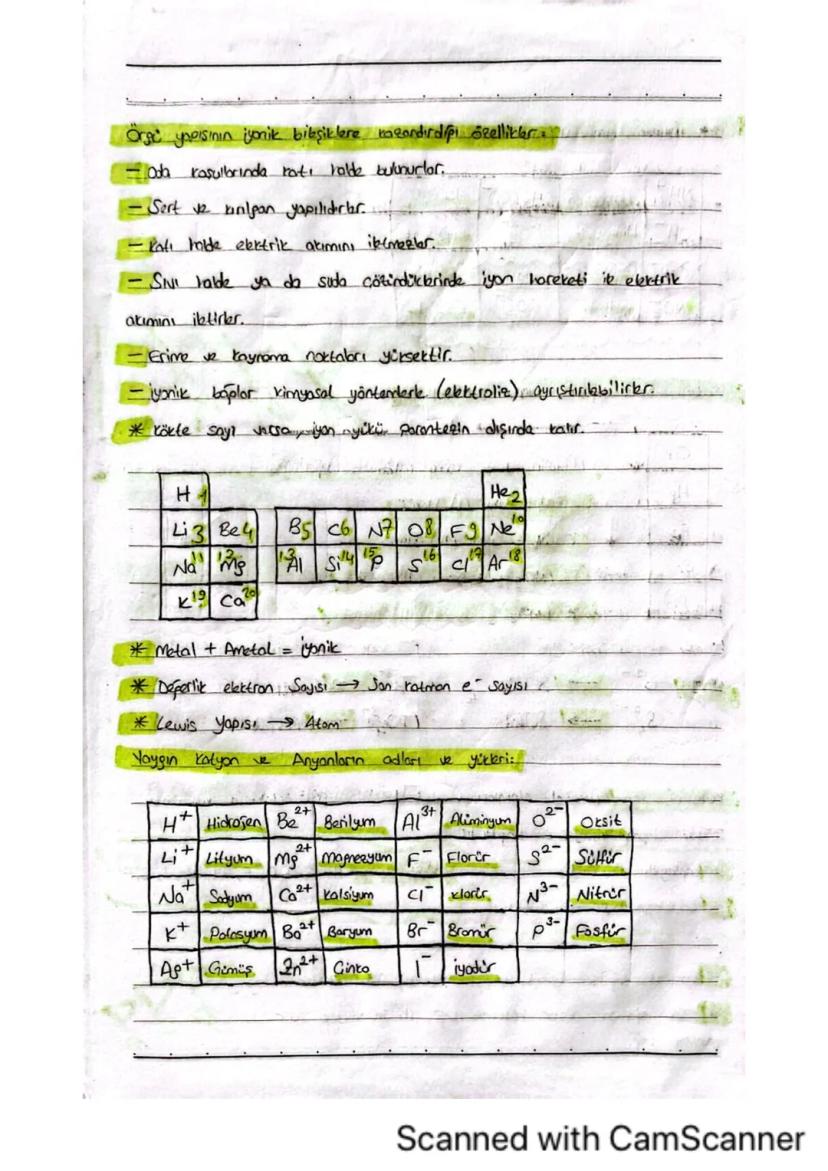 Örgü yapısının iyonik bileşiklere kazandırdığı özellikler:
- Oda koşullarında katı halde bulunurlar.
- Sert ve kırılgan yapılıdırlar.
- Katı halde elektrik akımını iletmezler.
- Sıvı halde ya da suda çözündüklerinde iyon hareketi ile elektrik
akımını iletirler.
- Erime ve kaynama noktaları yüksektir.
- iyonik bağlar kimyasal yöntemlerle (elektroliz) ayrıştırılabilirler.
* Kökte sayı varsa, iyon yükü parantezin dışında kalır.
H 1 He 2
Li 3 Be 4 B 5 C 6 N 7 O 8 F 9 Ne 10
Na 11 Mg 12 Al 13 Si 14 P 15 S 16 Cl 17 Ar 18
K 19 Ca 20
* Metal + Ametal = iyonik
* Değerlik elektron Sayısı → Son katman e⁻ sayısı
* Lewis yapısı → Atom
Yaygın Katyon ve Anyonların adları ve yükleri:
H⁺ Hidrojen Be²⁺ Berilyum Al³⁺ Alüminyum O²⁻ Oksit
Li⁺ Lityum Mg²⁺ Magnezyum F⁻ Florür S²⁻ Sülfür
Na⁺ Sodyum Ca²⁺ Kalsiyum Cl⁻ Klorür N³⁻ Nitrür
K⁺ Potasyum Ba²⁺ Baryum Br⁻ Bromür P³⁻ Fosfür
Ag⁺ Gümüş Zn²⁺ Çinko I⁻ iyodür
Scanned with CamScanner